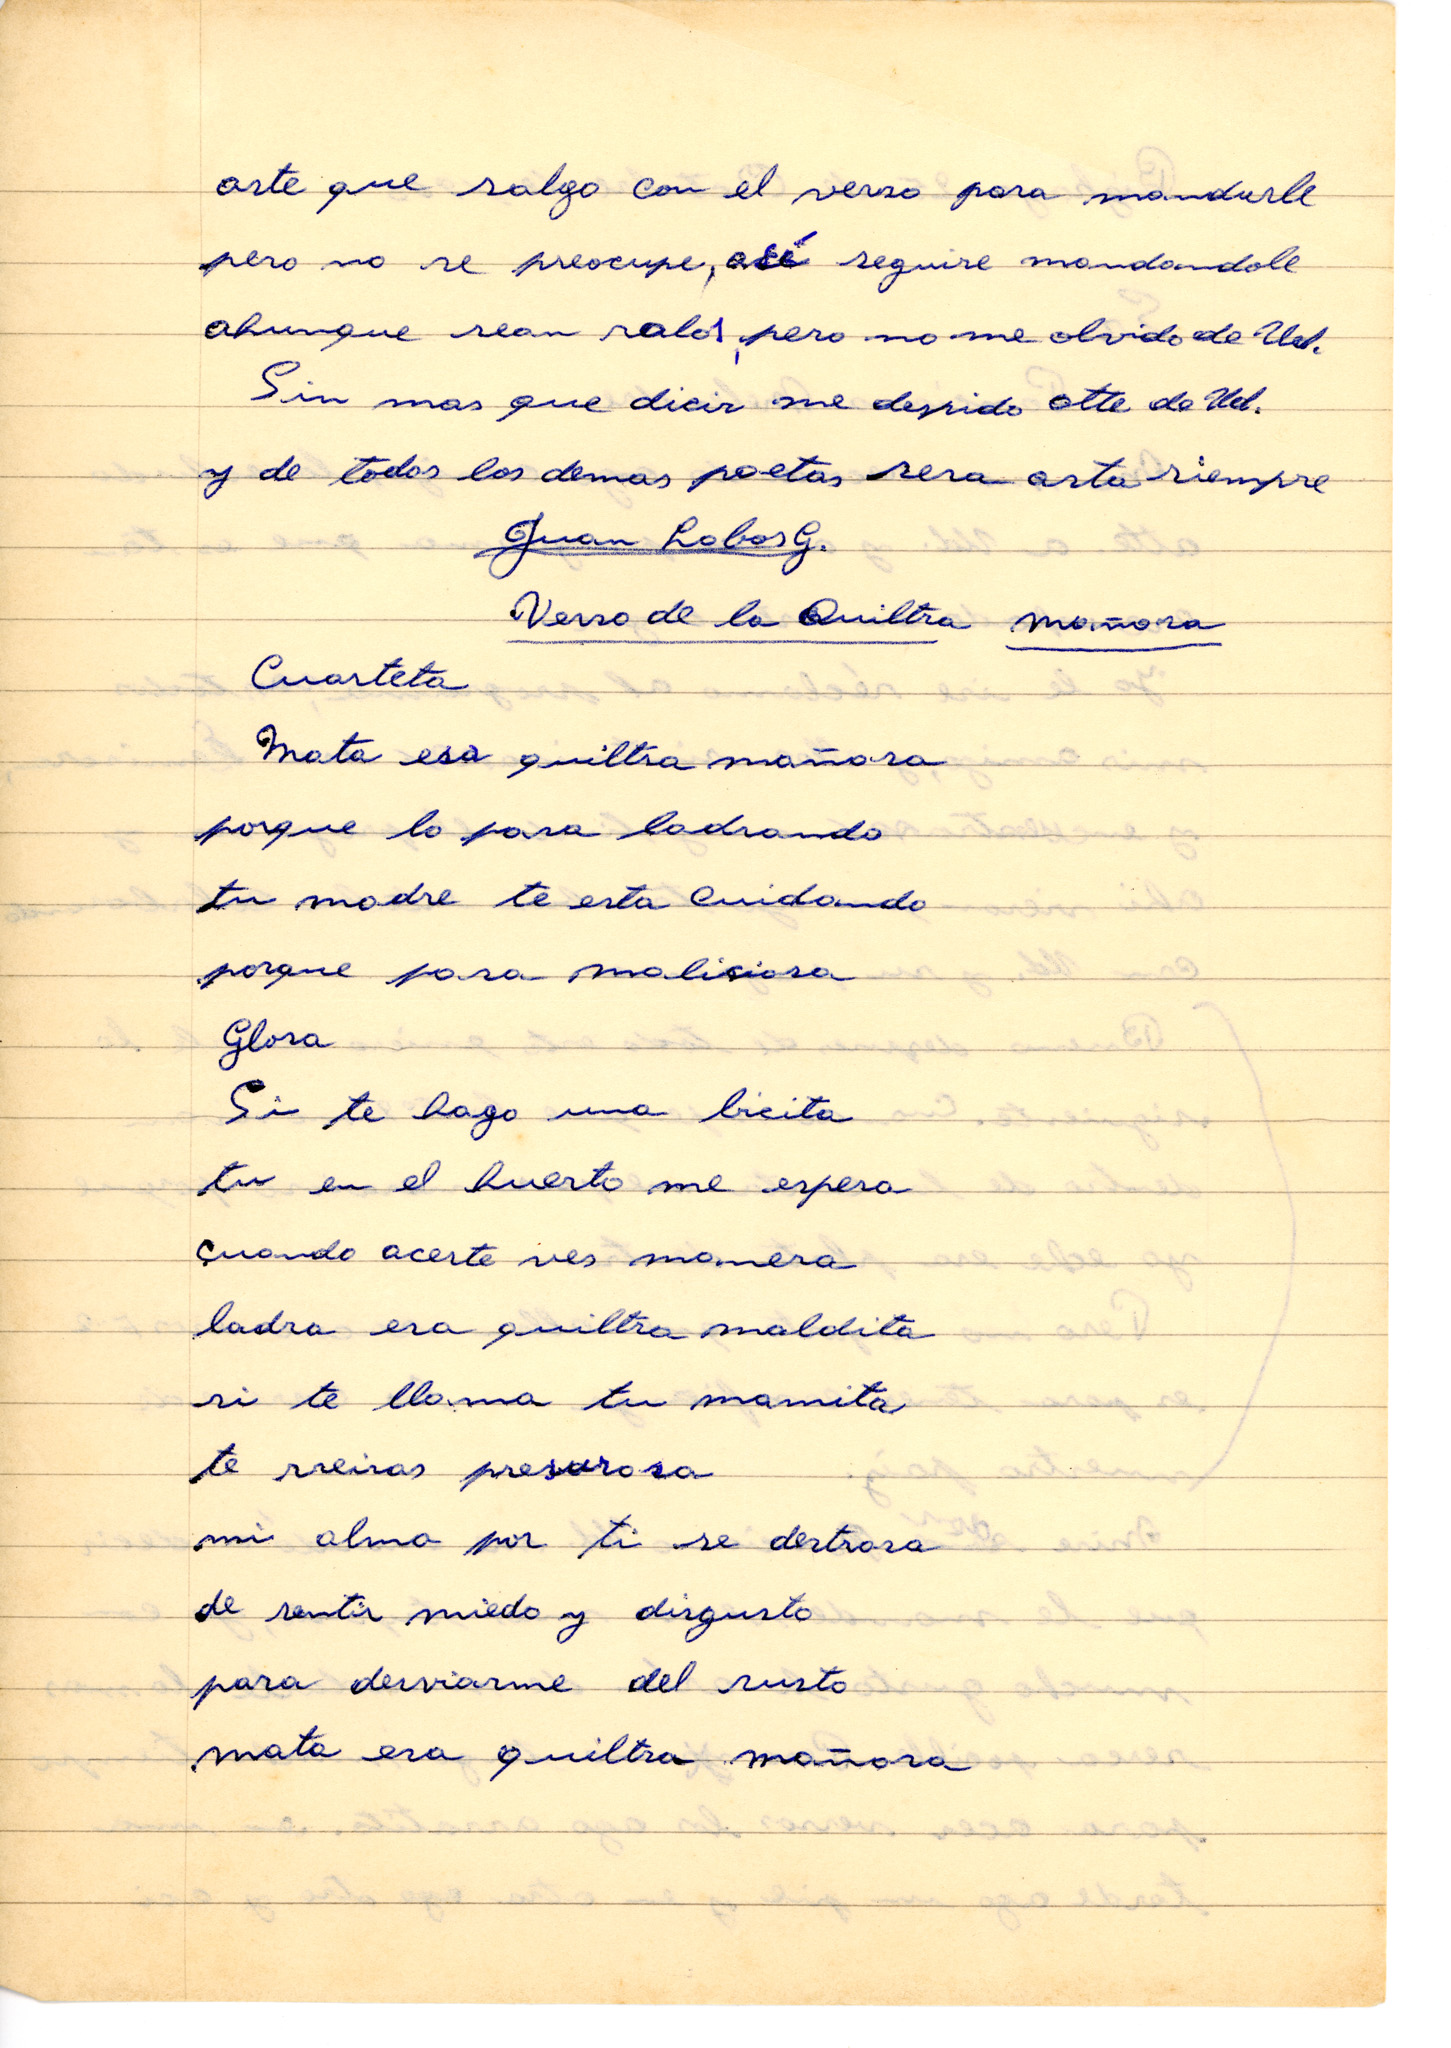 asta que salgo con el verso para mandarle
pero no se preocupe, así seguire mandandole
ahunque sean ralos, pero no me olvido de Ud.
Sin mas que dicir me despido atte de Ud.
y de todos los demas poetas sera asta siempre
Juan Lobos G.
Verso de la Quiltra mañosa
Cuarteta
Mata esa quiltra mañosa
porque lo pasa ladrando
tu madre te esta cuidando
porque pasa malisiosa
Glosa
Si te hago una bicita
tu en el huerto me espera
cuando aceste ves manera
ladra esa quiltra maldita
si te llama tu mamita
te rreiras presurosa
mi alma por ti se destrosa
de sentir miedo y disgusto
para desviarme del susto
mata esa quiltra mañosa